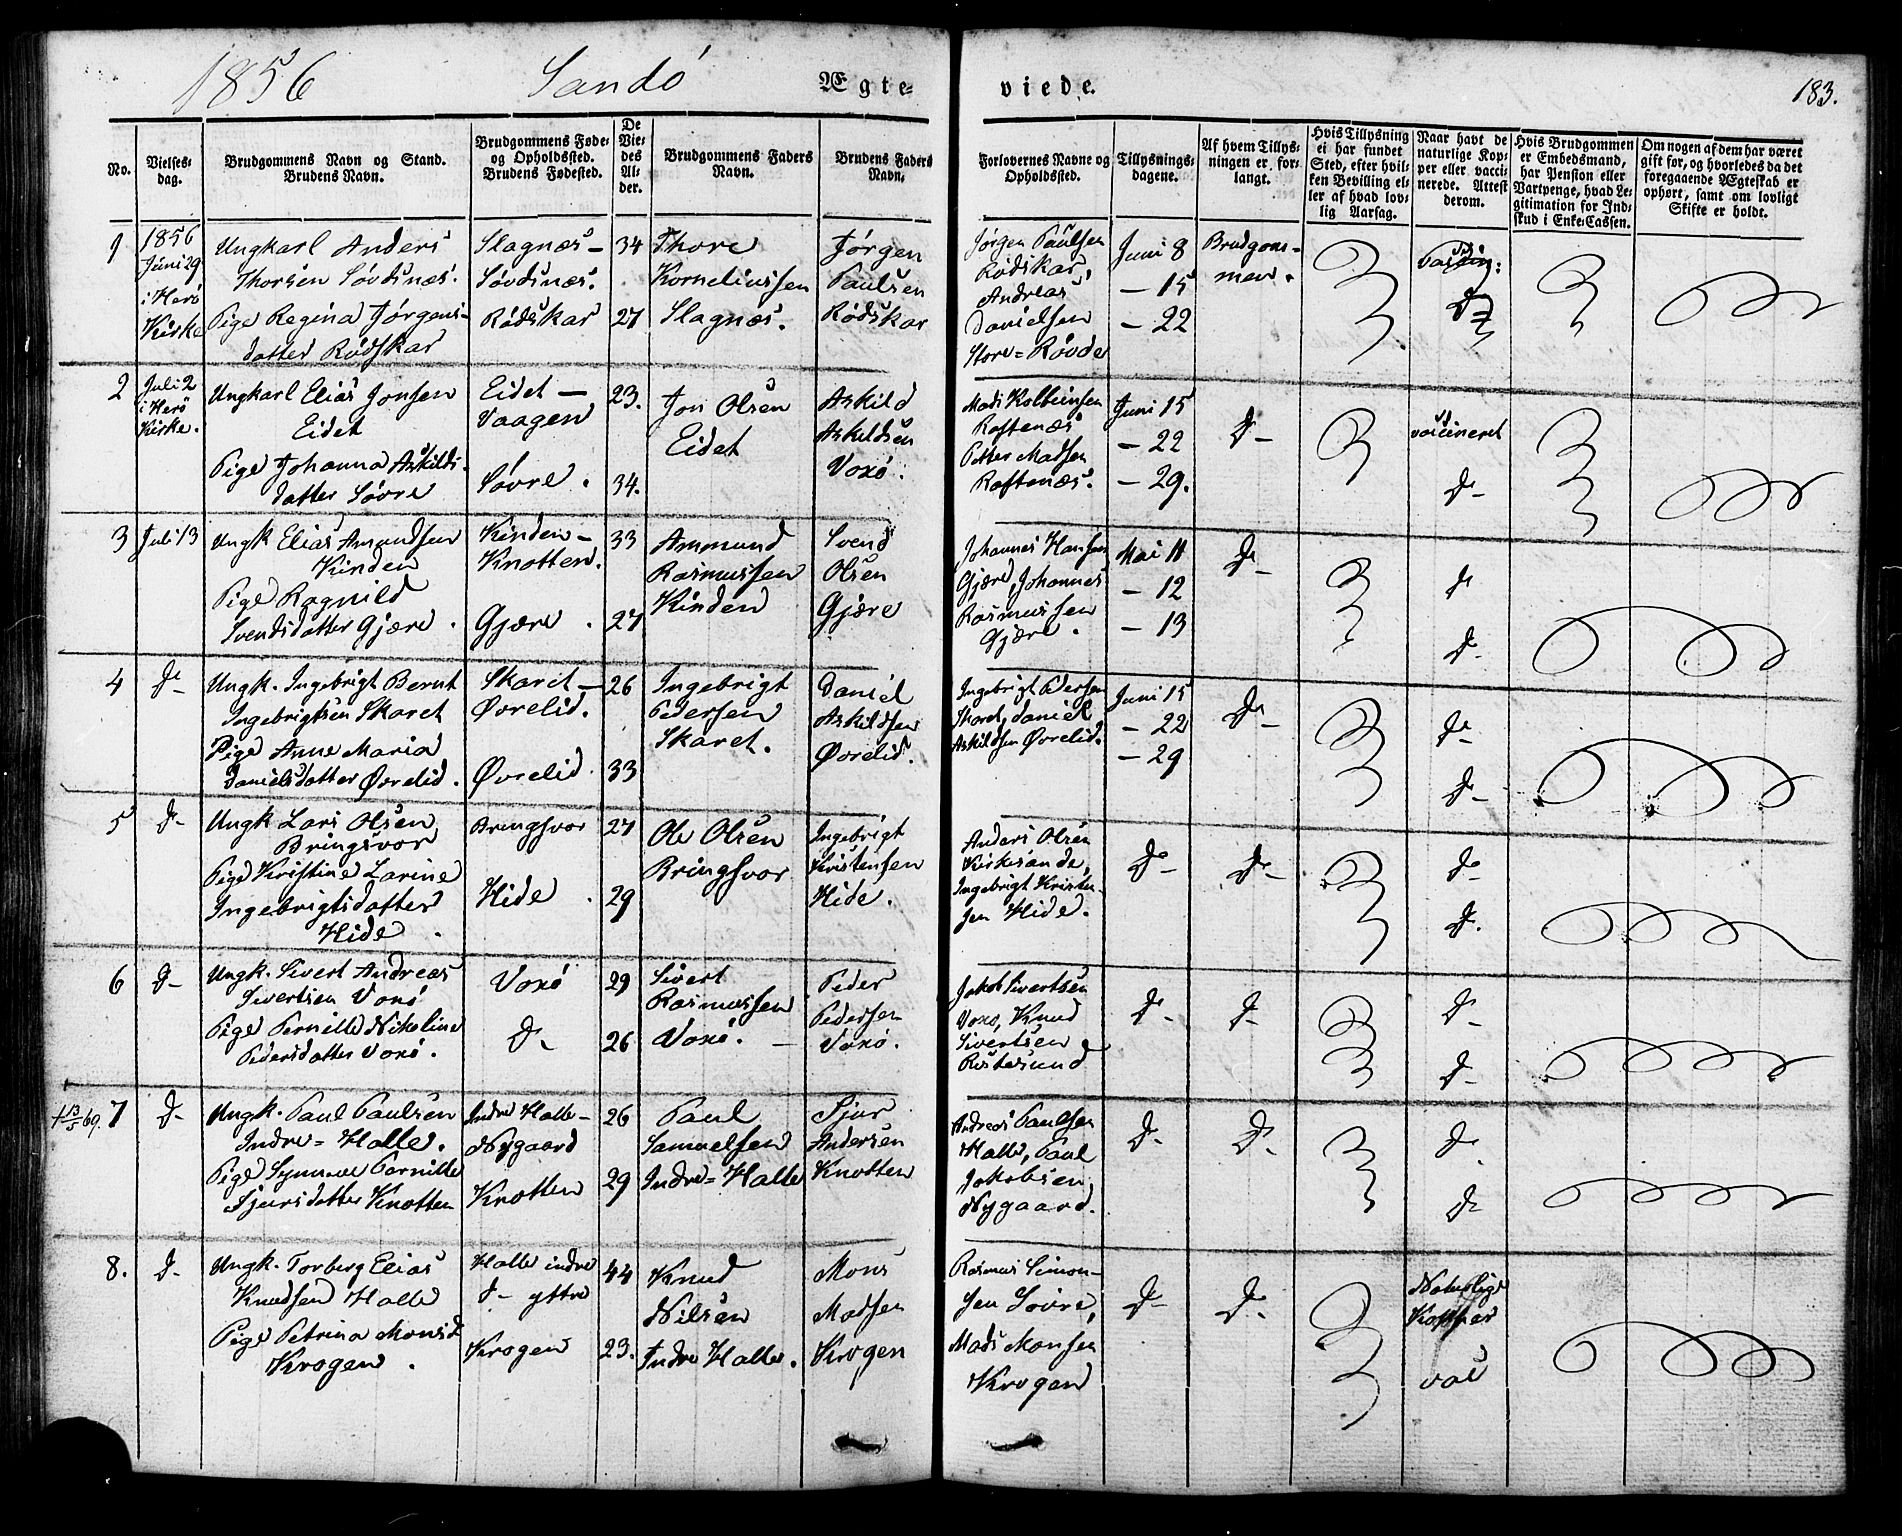 1856 Sandö Ægte- viede. 183.
No.
Vielses-
dag.
Brudgommens Navn og Stand.
Brudens Navn.
Brudgommens Føde-
og Opholdssted.
Brudens Fødested.
De
Vie-
des
Al-
der.
Brudgommens Faders
Navn.
Brudens Faders
Navn.
Forlovernes Navne og
Opholdssted.
Tillysnings-
dagene.
Af hvem Tillys-
ningen er for-
langt.
Hvis Tillysning
ei har fundet
Sted, efter hvil-
ken Bevilling el-
ler af hvad lov-
lig Aarsag.
Naar havt de
naturlige Kop-
per eller vacci-
nerede. Attest
derom.
Hvis Brudgommen
er Embedsmand,
har Pension eller
Vartpenge, hvad Le-
gitimation for Ind-
skud i Enke-Cassen.
Om nogen af dem har været
gift før, og hvorledes da det
foregaaende Ægteskab er
ophørt, samt om lovligt
Skifte er holdt.
1
1856
Juni 29
i Herö
Kirke
Ungkarl Anders
Thorsen Sövdsnæs.
Pige Regina Jörgens-
datter Rödskar
Slagnæs-
Sövdsnæs.
Rödskar
34
27
Thore
Korneliussen
Slagnæs.
Jörgen
Paulsen
Rödskar
Jörgen Paulsen
Rödskar,
Andreas
Danielsen
Store=Røvde
Juni 8
- 15
- 22
Brudgom-
men.
Do
2
Juli 2
i Herö
Kirke.
Ungkarl Elias Jonsen
Eidet
Pige Johanna Askilds-
datter Sövre
Eidet -
Vaagen
Sövre.
23.
34.
Jon Olsen
Eidet
Askild
Askildsen
Voxö.
Mads Kolbeinsen
Roftenæs
Petter Madsen
Roftenæs.
Juni 15
- 22
- 29.
Do-
vaccineret
Do-
3
Juli 13
Ungk Elias Amundsen
Kinden
Pige Ragnild
Svendsdatter Gjære.
Kinden -
Knotten.
Gjære.
33
27
Ammund
Rasmussen
Kinden
Svend
Olsen
Gjære
Johannes Hansen
Gjære, Johannes
Rasmussen
Gjære.
Mai 11
- 12
- 13
Do-
Do
Do-
4
Do-
Ungk. Ingebrigt Bernt
Ingebrigtsen Skaret
Pige Anne Maria
Danielsdatter Øvrelid.
Skaret -
Øvrelid.
Øvrelid
26
33
Ingebrigt
Pedersen
Skaret.
Daniel
Askildsen
Øvrelid.
Ingebrigt Pedersen
Skaret, Daniel
Askildsen Øvrelid.
Juni 15
- 22
- 29
Do-
Do-
Do-
5
Do-
Ungk Lars Olsen
Bringsvor
Pige Kristine Larine
Ingebrigtsdatter
Hide.
Bringsvor
Hide.
27
29
Ole Olsen
Bringsvor
Ingebrigt
Kristensen
Hide.
Anders Olsen
Kirkesande,
Ingebrigt Kristen-
sen Hide.
Do-
Do-
Do-
Do-
6
Do-
Ungk. Sivert Andreas
Sivertsen Voxö
Pige Pernille Nikoline
Pedersdatter Voxö.
Voxö
Do-
29
26
Sivert
Rasmussen
Voxö. -
Peder
Pedersen
Voxö.
Jakob Sivertsen
Voxö, Knud
Sivertsen
Ristesund
Do-
Do-
Do-
Do-
† 13/5 69. 7
Do-
Ungk. Paul Paulsen
Indre=Halle.
Pige Synnøve Pernille
Sjursdatter Knotten
Indre Halle -
Nygaard
Knotten
26
29
Paul
Samuelsen
Indre=Halle
Sjur
Andersen
Knotten
Andreas Paulsen
Halle, Paul
Jakobsen
Nygaard.
Do-
Do-
Do-
Do-
8.
Do-
Ungk. Torberg Elias
Knudsen Halle
Pige Petrina Monsd
Krogen.
Halle indre
do- yttre
Krogen
44
23.
Knud
Nilsen
Indre Halle.
Mons
Madsen
Krogen
Rasmus Simon-
sen Sövre,
Mads Monsen
Krogen
Do-
Do-
Naturlige
Kopper
vac